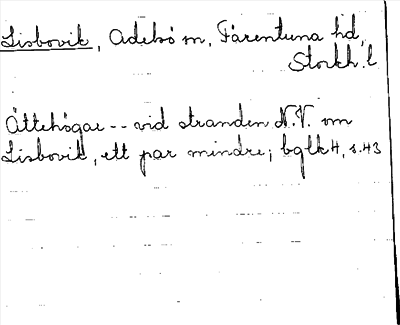 Lisbovik, Adelsö sn, Färentuna hd,
Stockh. l
Ättehögar -- vid stranden N.V. om
Lisbovik, ett par mindre; bglk 4, s. 43